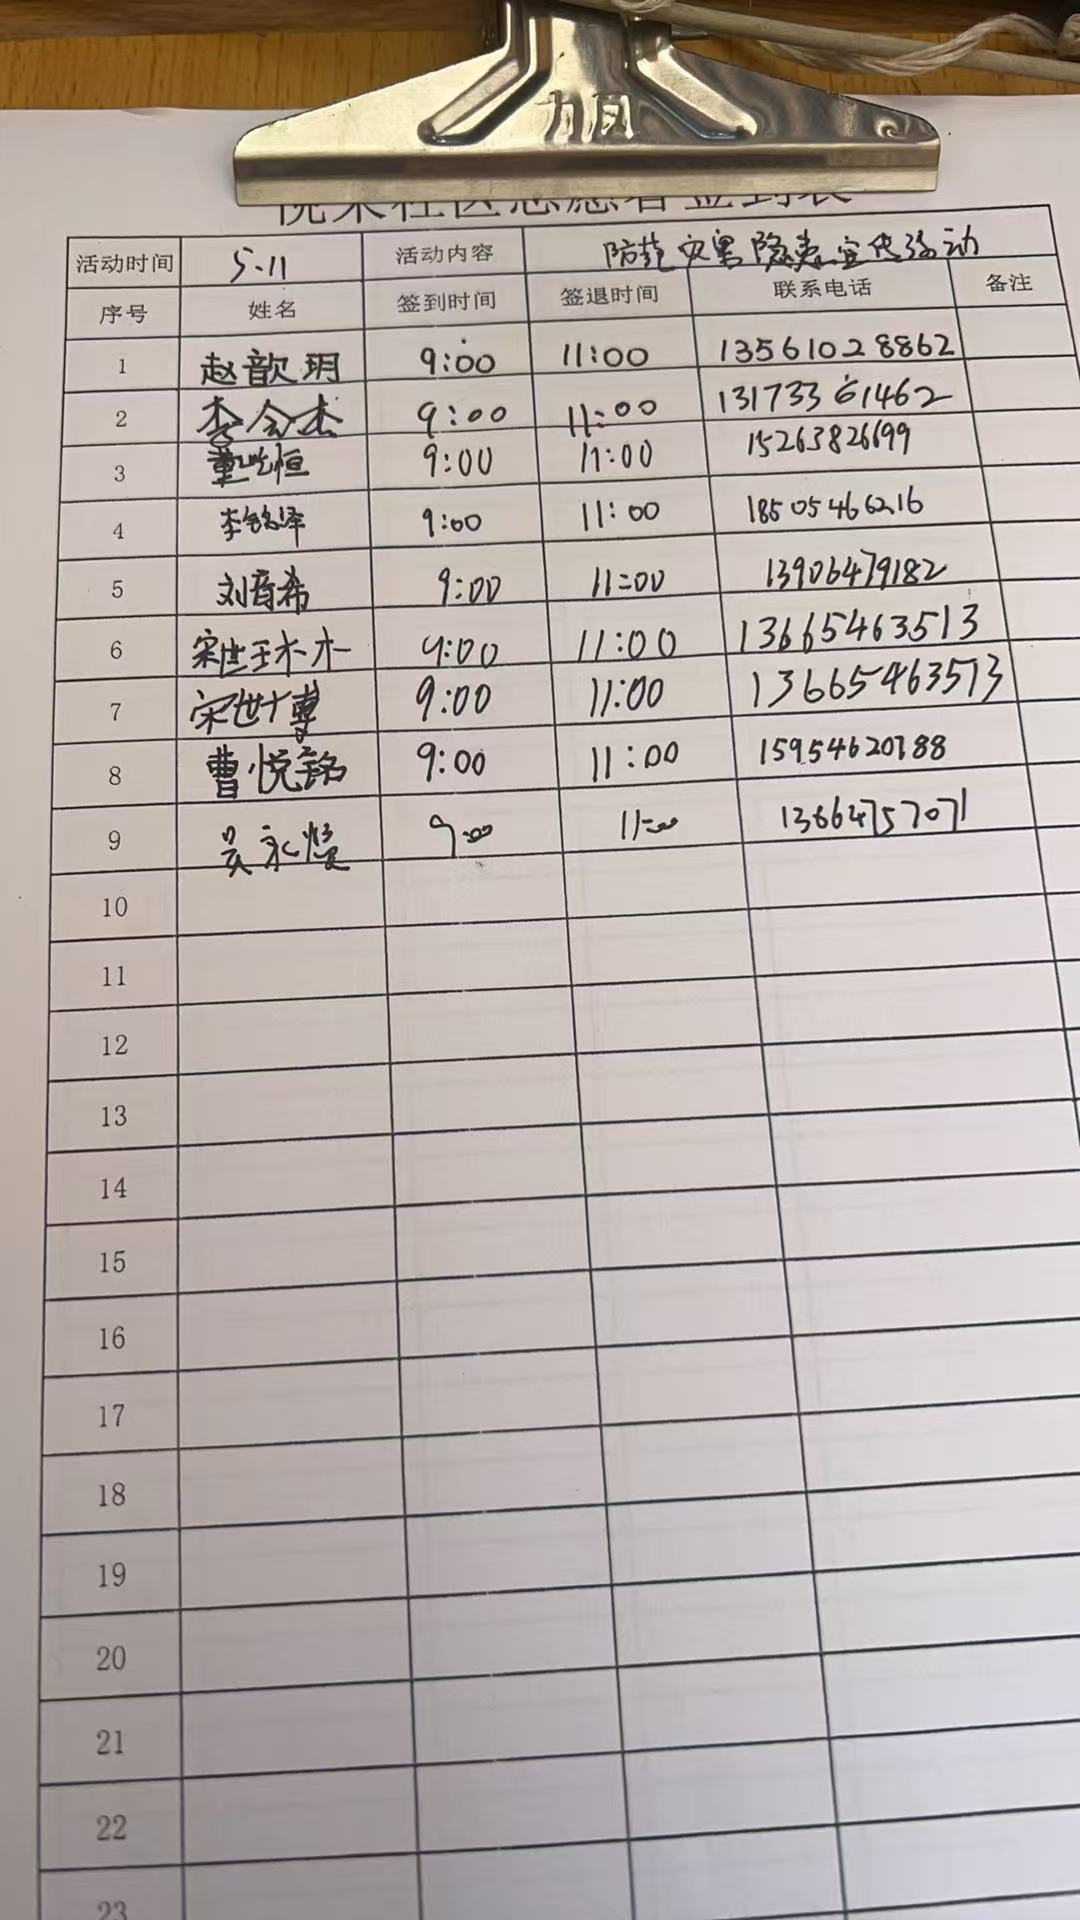 力凤
悦来社区志愿者签到表
活动时间 5.11 活动内容 防范灾害隐患宣传活动
序号 姓名 签到时间 签退时间 联系电话 备注
1 赵歆玥 9:00 11:00 13561028862
2 李会杰 9:00 11:00 13173361462
3 董 恒 9:00 11:00 15263826699
4 李铭泽 9:00 11:00 18505466216
5 刘音希 9:00 11:00 13906479182
6 宋世琳 9:00 11:00 13665463513
7 宋世博 9:00 11:00 13665463513
8 曹悦铭 9:00 11:00 15954620788
9 吴永 9:00 11:00 13664757071
10
11
12
13
14
15
16
17
18
19
20
21
22
23